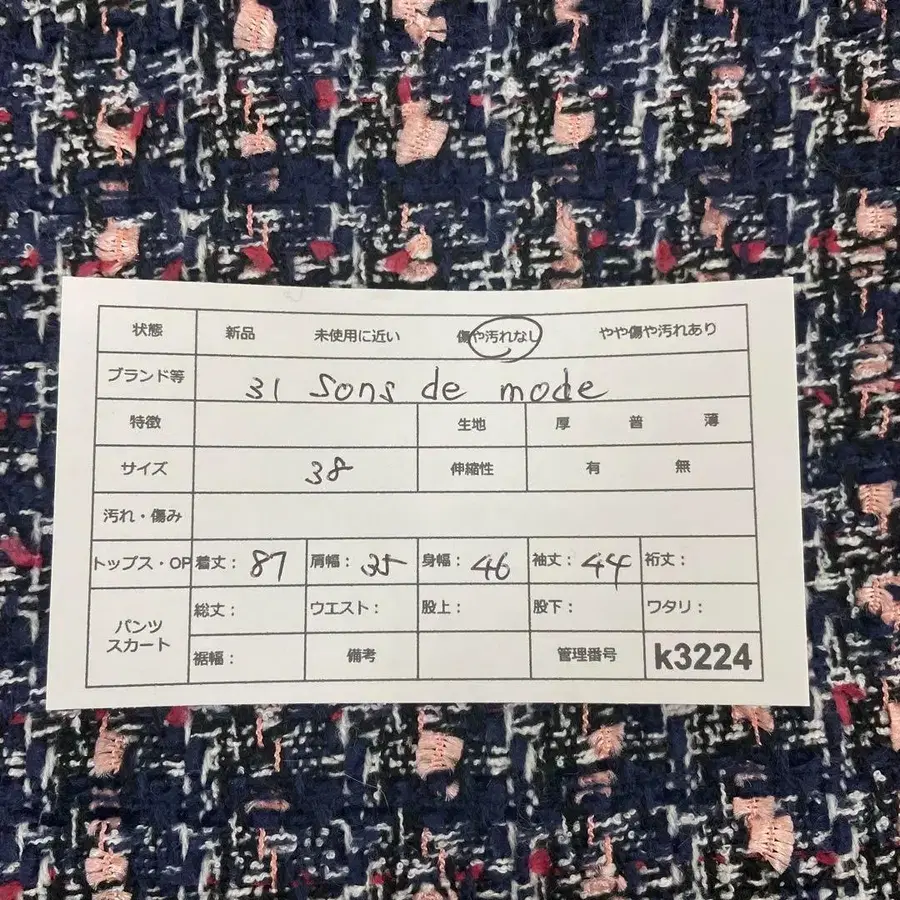 状態 新品 未使用に近い 傷や汚れなし やや傷や汚れあり
ブランド等 31 Sons de mode
特徴 生地 厚 普 薄
サイズ 38 伸縮性 有 無
汚れ・傷み
トップス・OP 着丈: 87 肩幅: 35 身幅: 46 袖丈: 44 裄丈:
パンツ スカート 総丈: ウエスト: 股上: 股下: ワタリ:
裾幅: 備考 管理番号 k3224